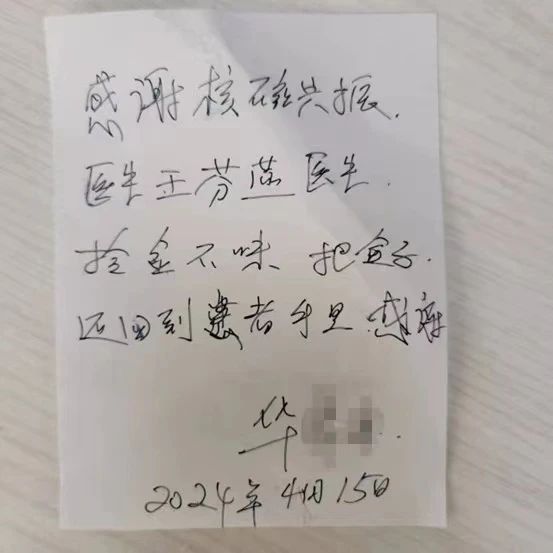 感谢核磁共振.
医生王芬燕医生.
拾金不昧 把盒子.
还回到患者手里.感谢
华
2024年4月15日